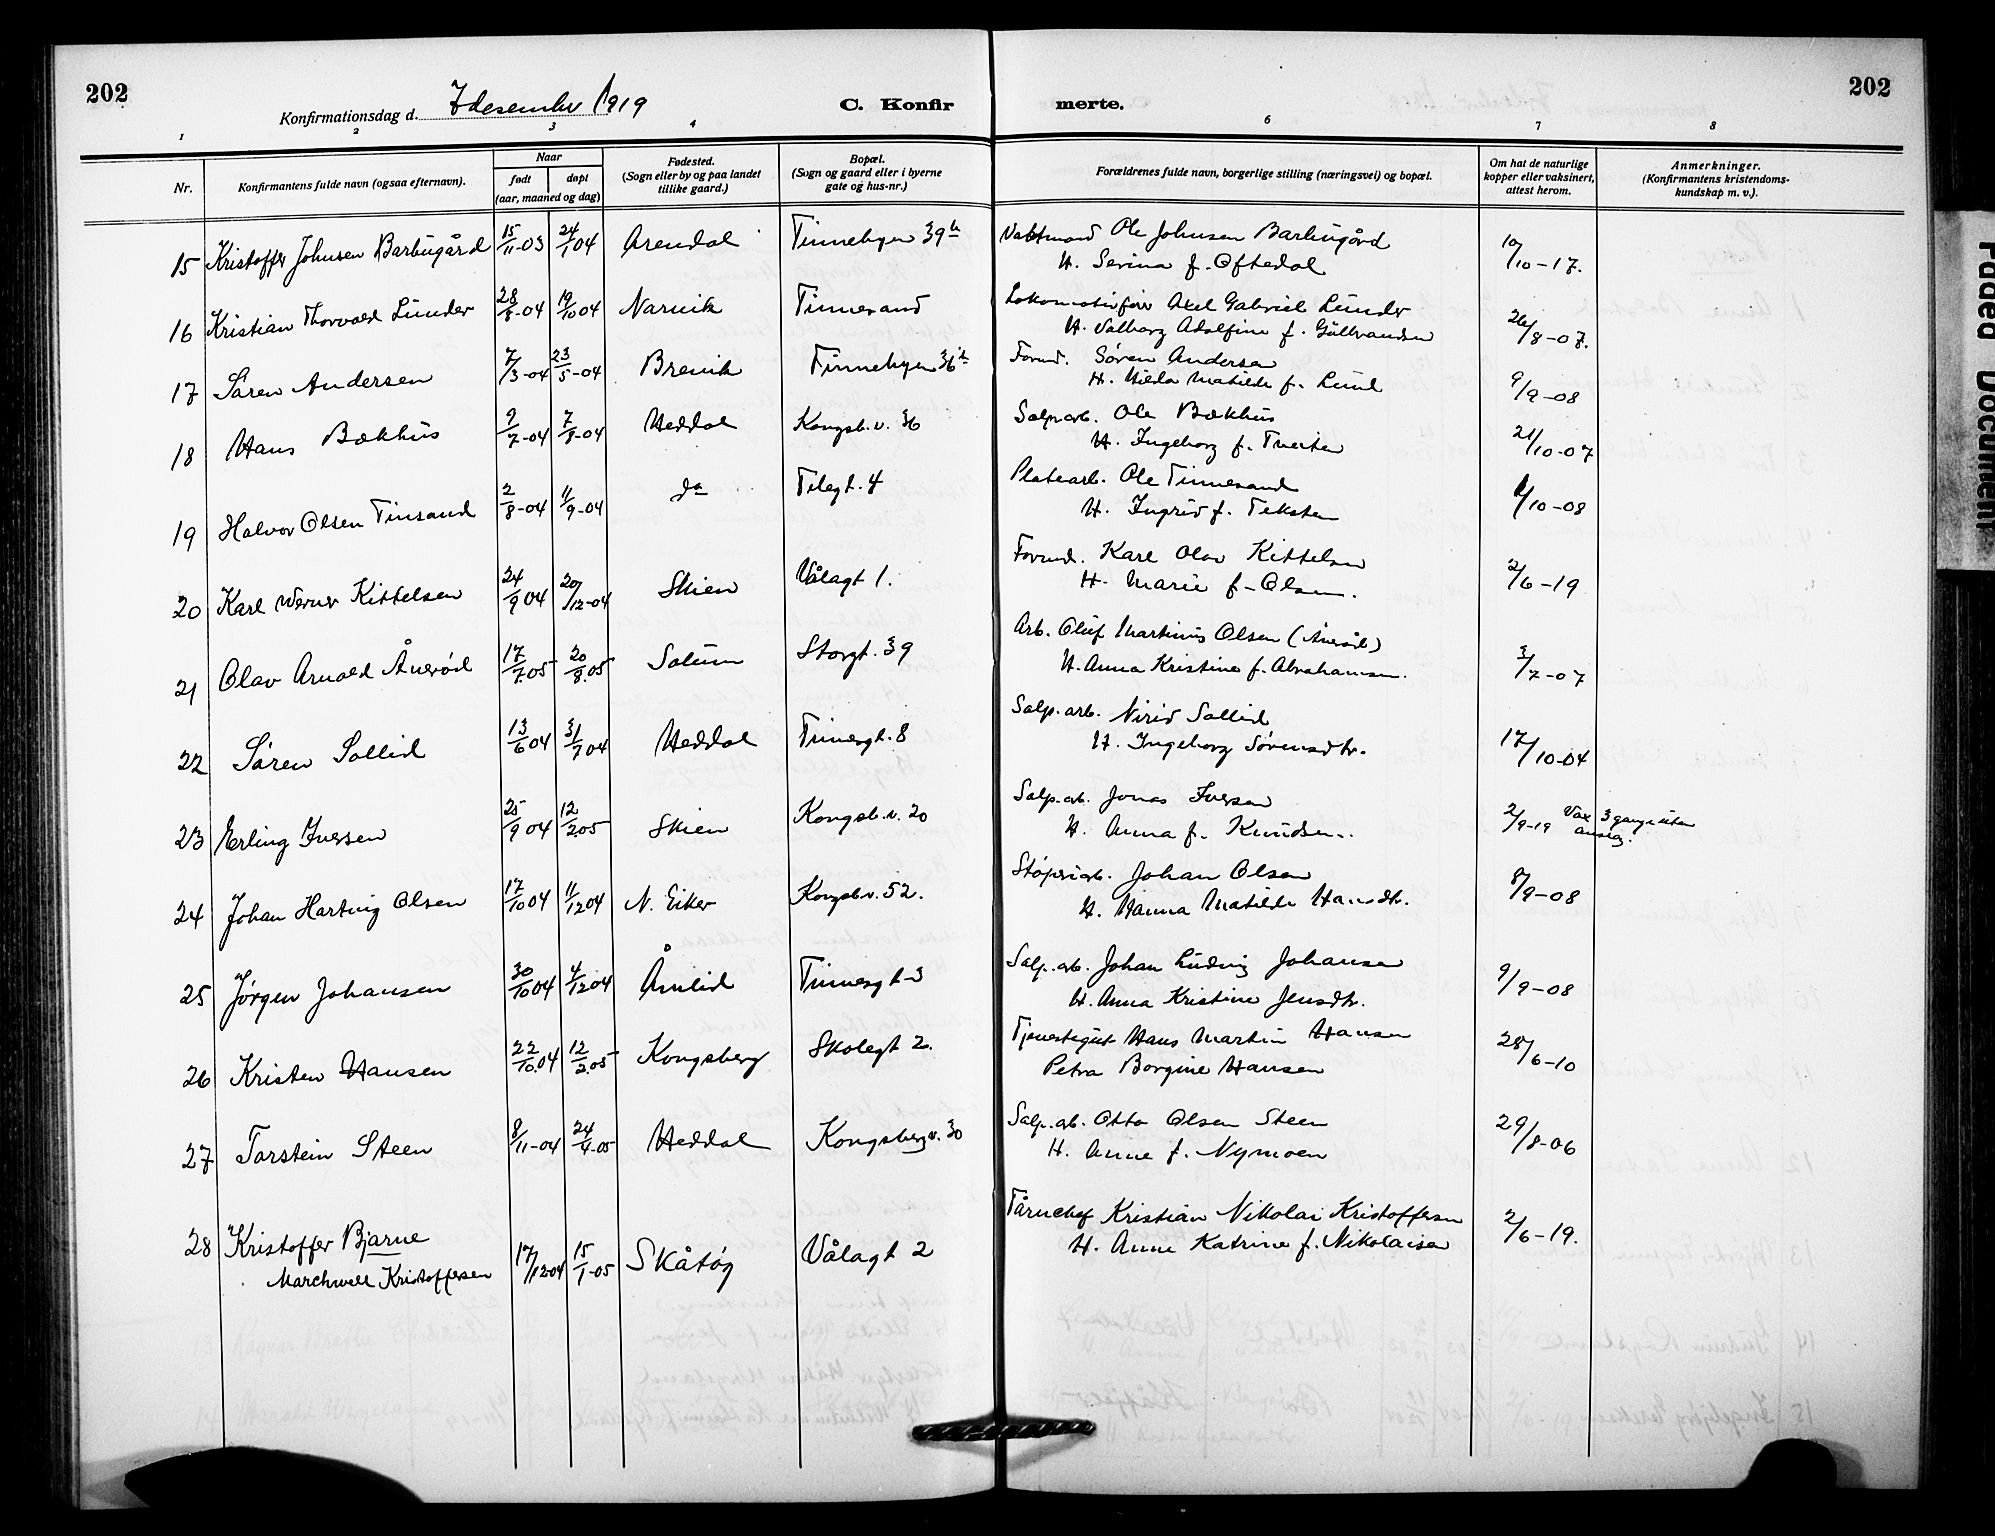 202
Konfirmationsdag d. 7 desember 1919
C. Konfirmerte.
202
1 2 3 4 6 7 8
Nr.
Konfirmantens fulde navn (ogsaa efternavn).
Naar
født
døpt
(aar, maaned og dag)
Fødested.
(Sogn eller by og paa landet
tillike gaard.)
Bopæl.
(Sogn og gaard eller i byerne
gate og hus-nr.)
Forældrenes fulde navn, borgerlige stilling (næringsvei) og bopæl.
Om hat de naturlige
kopper eller vaksinert,
attest herom.
Anmerkninger.
(Konfirmantens kristendoms-
kundskap m. v.).
15 Kristoffer Johnsen Barbugård 15/11-03 24/1 04 Arendal Tinnebyen 39 b Vaktmand Ole Johnsen Barbugård 10/10-17.
H. Serina f. Oftedal
16 Kristian Thorvald Lunder 28/8-04 19/10 04 Narvik Tinnesand Lokomotivfører Axel Gabriel Lunder 26/8-07.
H. Valborg Adolfine f. Gulbrandsen
17 Søren Andersen 7/3-04 23/5-04 Brevik Tinnebyen 36 b Formd. Søren Andersen 9/9-08
H. Hilda Matilde f. Lund
18 Hans Bækhus 9/7-04 7/8-04 Heddal Kongsb.v. 36 Salp.arb. Ole Bækhus 21/10-07
H. Ingeborg f. Tveiten
19 Halvor Olsen Tinsand 2/8-04 11/9-04 do Telegt. 4 Platearb. Ole Tinnesand 1/10-08
H. Ingrid f. Teksten
20 Karl Werner Kittelsen 24/9 04 20/12-04 Skien Vålagt 1. Formd. Karl Olav Kittelsen 2/6-19
H. Marie f. Olsen.
21 Olav Arnold Ånerød 17/7.05 20/8.05 Solum Storgt. 39 Arb. Oluf Martinius Olsen (Ånerød) 3/7-07
H. Anna Kristine f. Abrahamsen.
22 Søren Sollid 13/6 04 31/7 04 Heddal Tinnesgt. 8 Salp. arb. Nirid Sollid 17/10-04
H. Ingeborg Sørensdtr.
23 Erling Iversen 25/9 04 12/2.05 Skien Kongsb.v. 20 Salp.arb. Jonas Iversen 2/9-19 Vax 3 gange uten
H. Anna f. Knudsen.
24 Johan Hartvig Olsen 17/10 04 11/12 04 N. Eiker Kongsb.v. 52. Støperiarb. Johan Olsen 8/9-08
H. Hanna Matilde Hansdtr.
25 Jørgen Johansen 30/10 04 4/12 04 Åmlid Tinnesgt-3 Salp.arb. Johan Ludvig Johansen 9/9-08
H. Anna Kristine Jensdtr.
26 Kristen Hansen 22/10.04 12/2.05 Kongsberg Skolegt 2. Tjenestegut Hans Martin Hansen 28/6-10
Petra Borgine Hansen
27 Torstein Steen 8/11-04 24/4-05 Heddal Kongsberg v. 30 Salp.arb. Otto Olsen Steen 29/8-06
H. Anne f. Nymoen
28 Kristoffer Bjarne
Marchwell Kristoffersen 17/12-04 15/1-05 Skåtøy Vålagt 2 Tårnchef Kristian Nikolai Kristoffersen 2/6-19.
H. Anne Katrine f. Nikolaisen
Faded Document